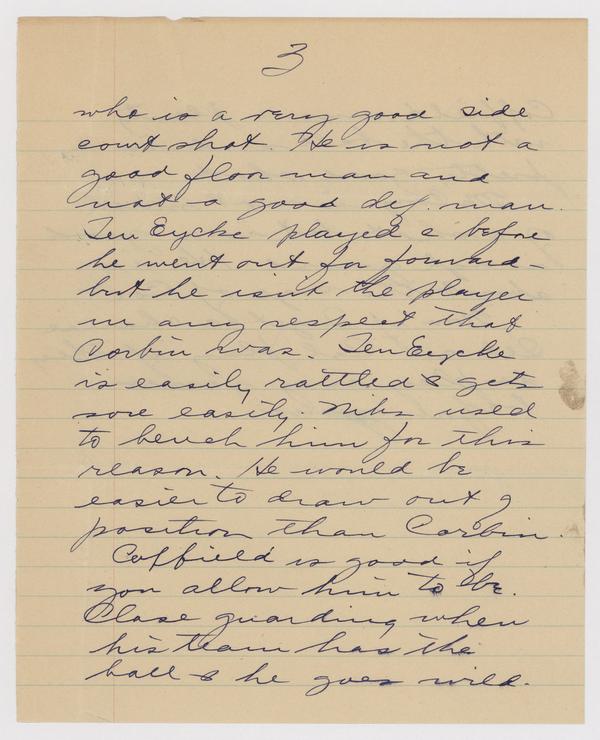 3
who is a very good side
court shot. He is not a
good floor man and
not a good def. man.
TenEycke played c before
he went out for forward -
but he isn't the player
in any respect that
Corbin was. TenEycke
is easily rattled & gets
sore easily. Niks used
to bench him for this
reason. He would be
easier to draw out of
position than Corbin.
Coffield is good if
you allow him to be.
Close guarding when
his team has the
ball & he goes wild.